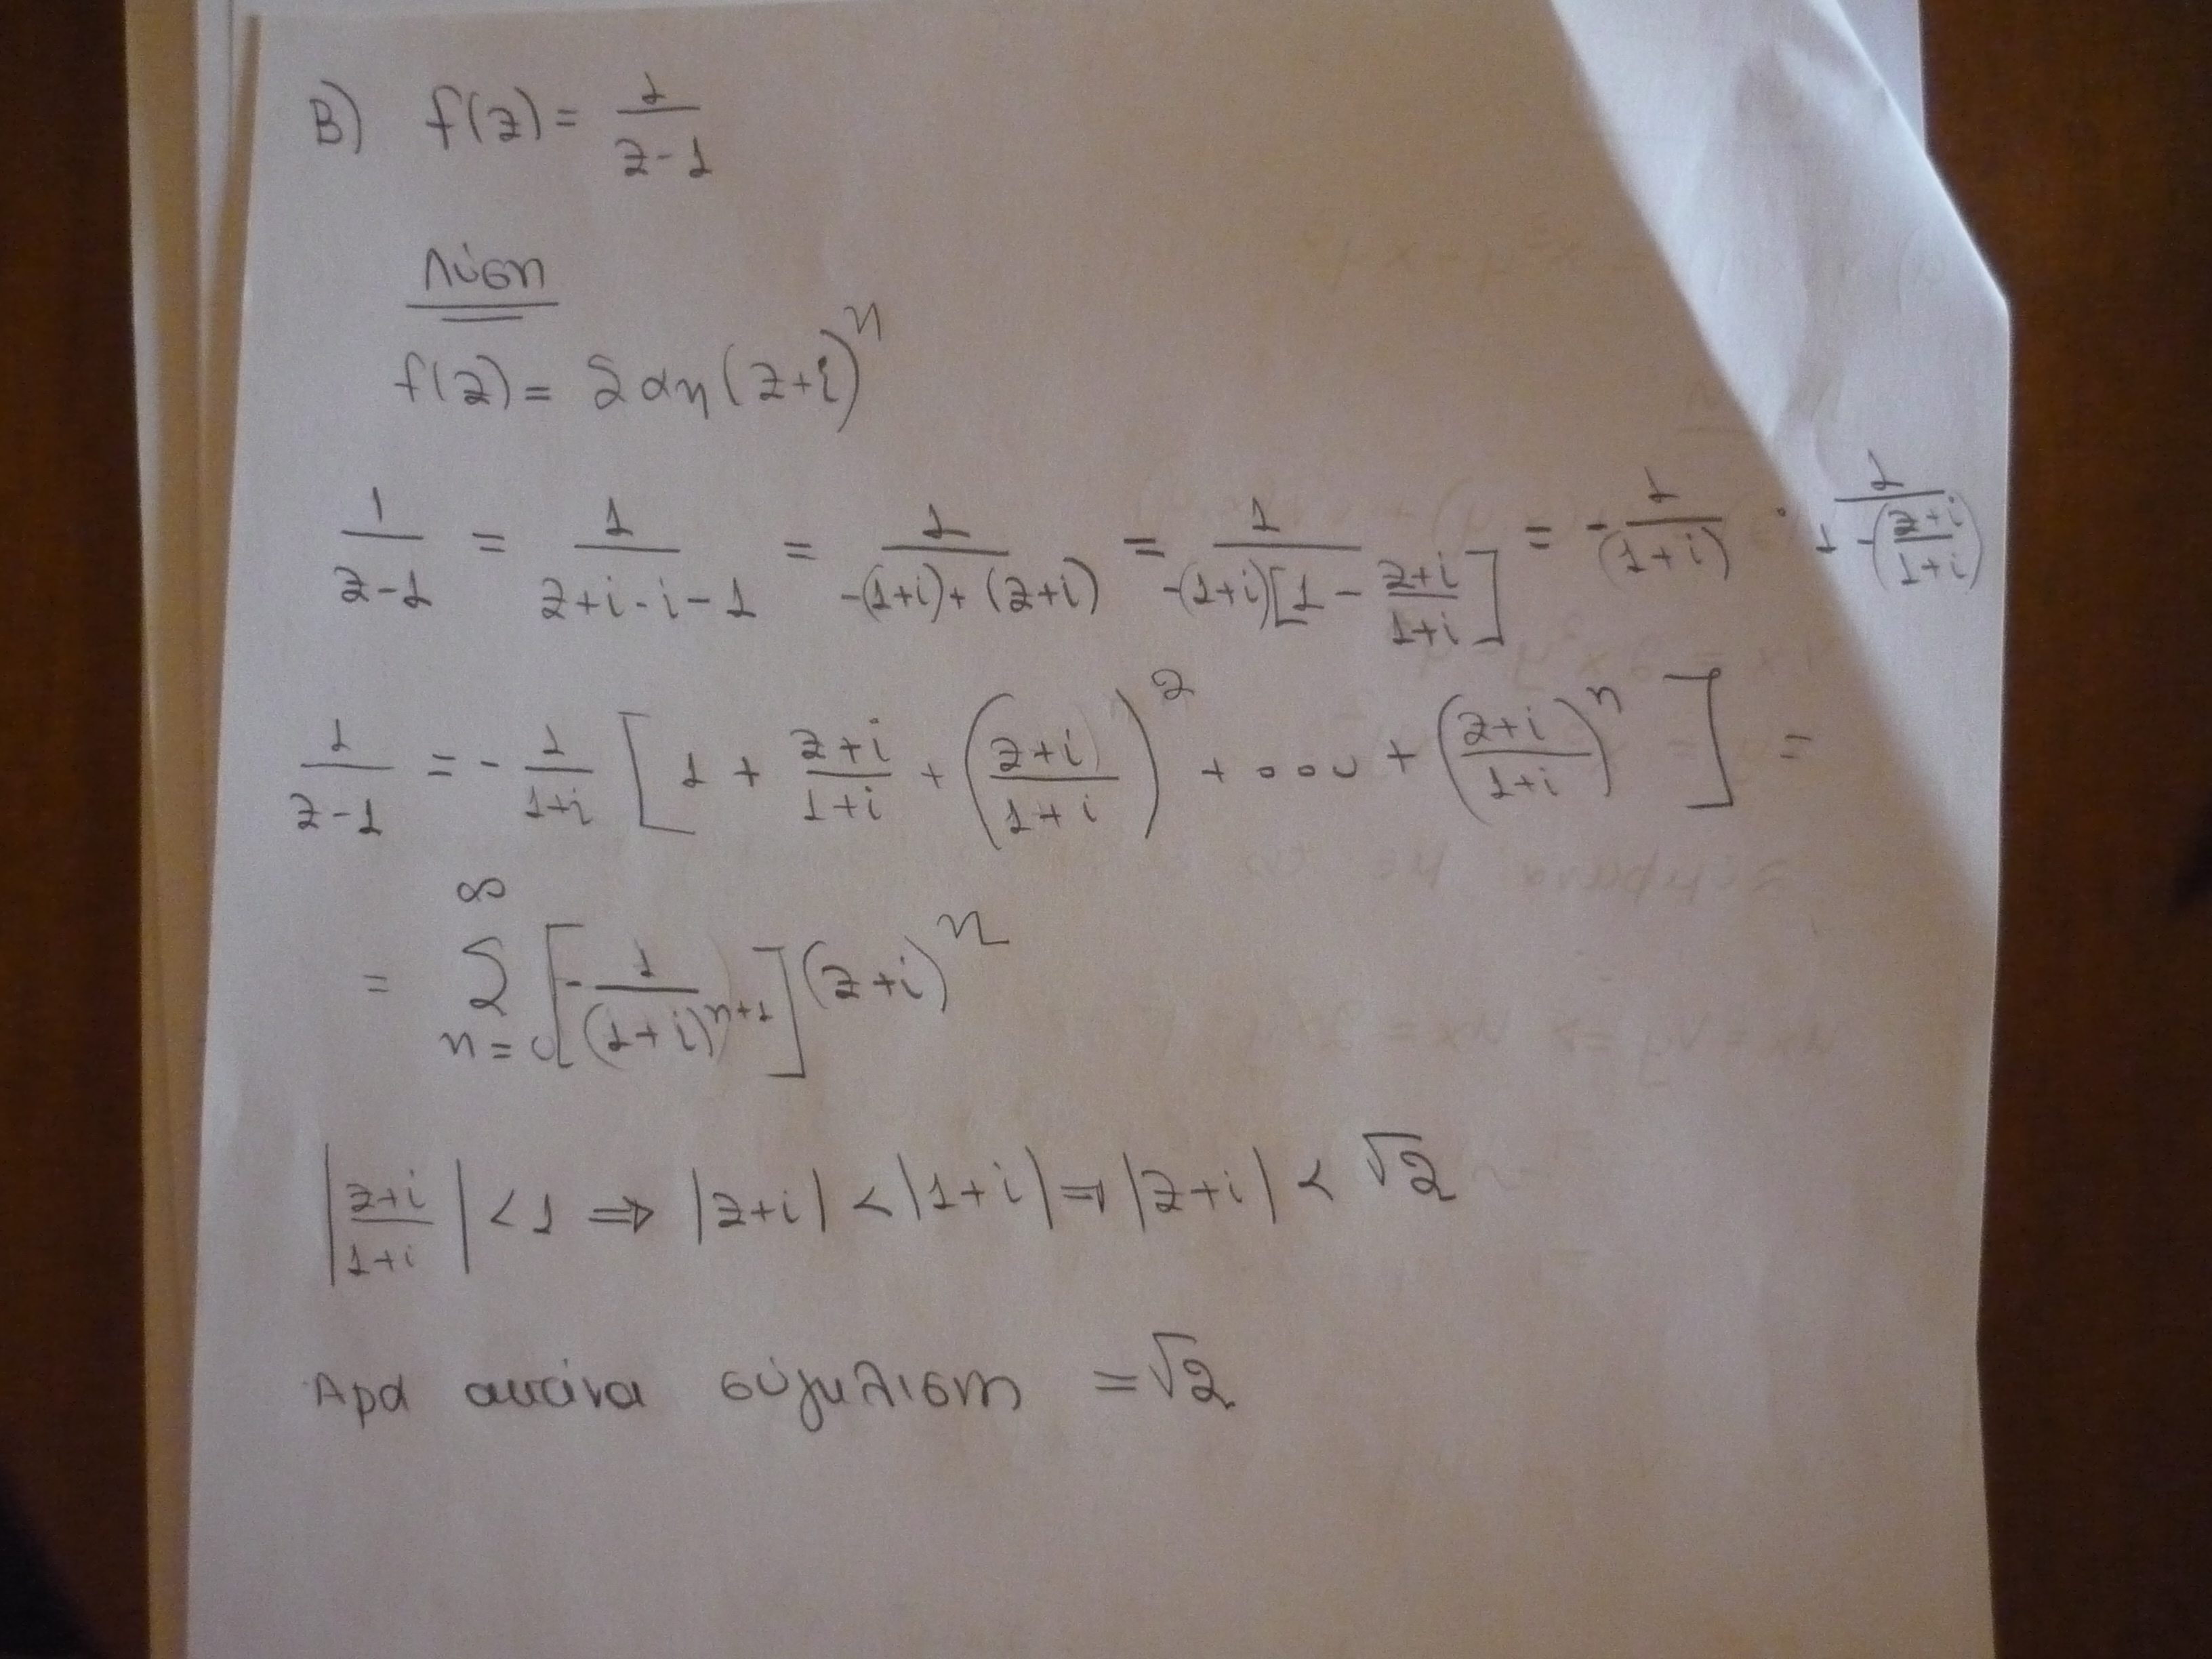 B) f(z) = 1/(z-1)
Λύση
f(z) = Σ αn (z+i)^n
1/(z-1) = 1/(z+i-i-1) = 1/(-(1+i)+(z+i)) = 1/(-(1+i)[1 - (z+i)/(1+i)]) = -1/(1+i) · 1/(1-((z+i)/(1+i)))
1/(z-1) = - 1/(1+i) [1 + (z+i)/(1+i) + ((z+i)/(1+i))^2 + ... + ((z+i)/(1+i))^n] =
= Σ_{n=0}^{∞} [-1/(1+i)^{n+1}] (z+i)^n
|(z+i)/(1+i)| < 1 ⇒ |z+i| < |1+i| ⇒ |z+i| < √2
Αρα ακτίνα σύγκλιση = √2